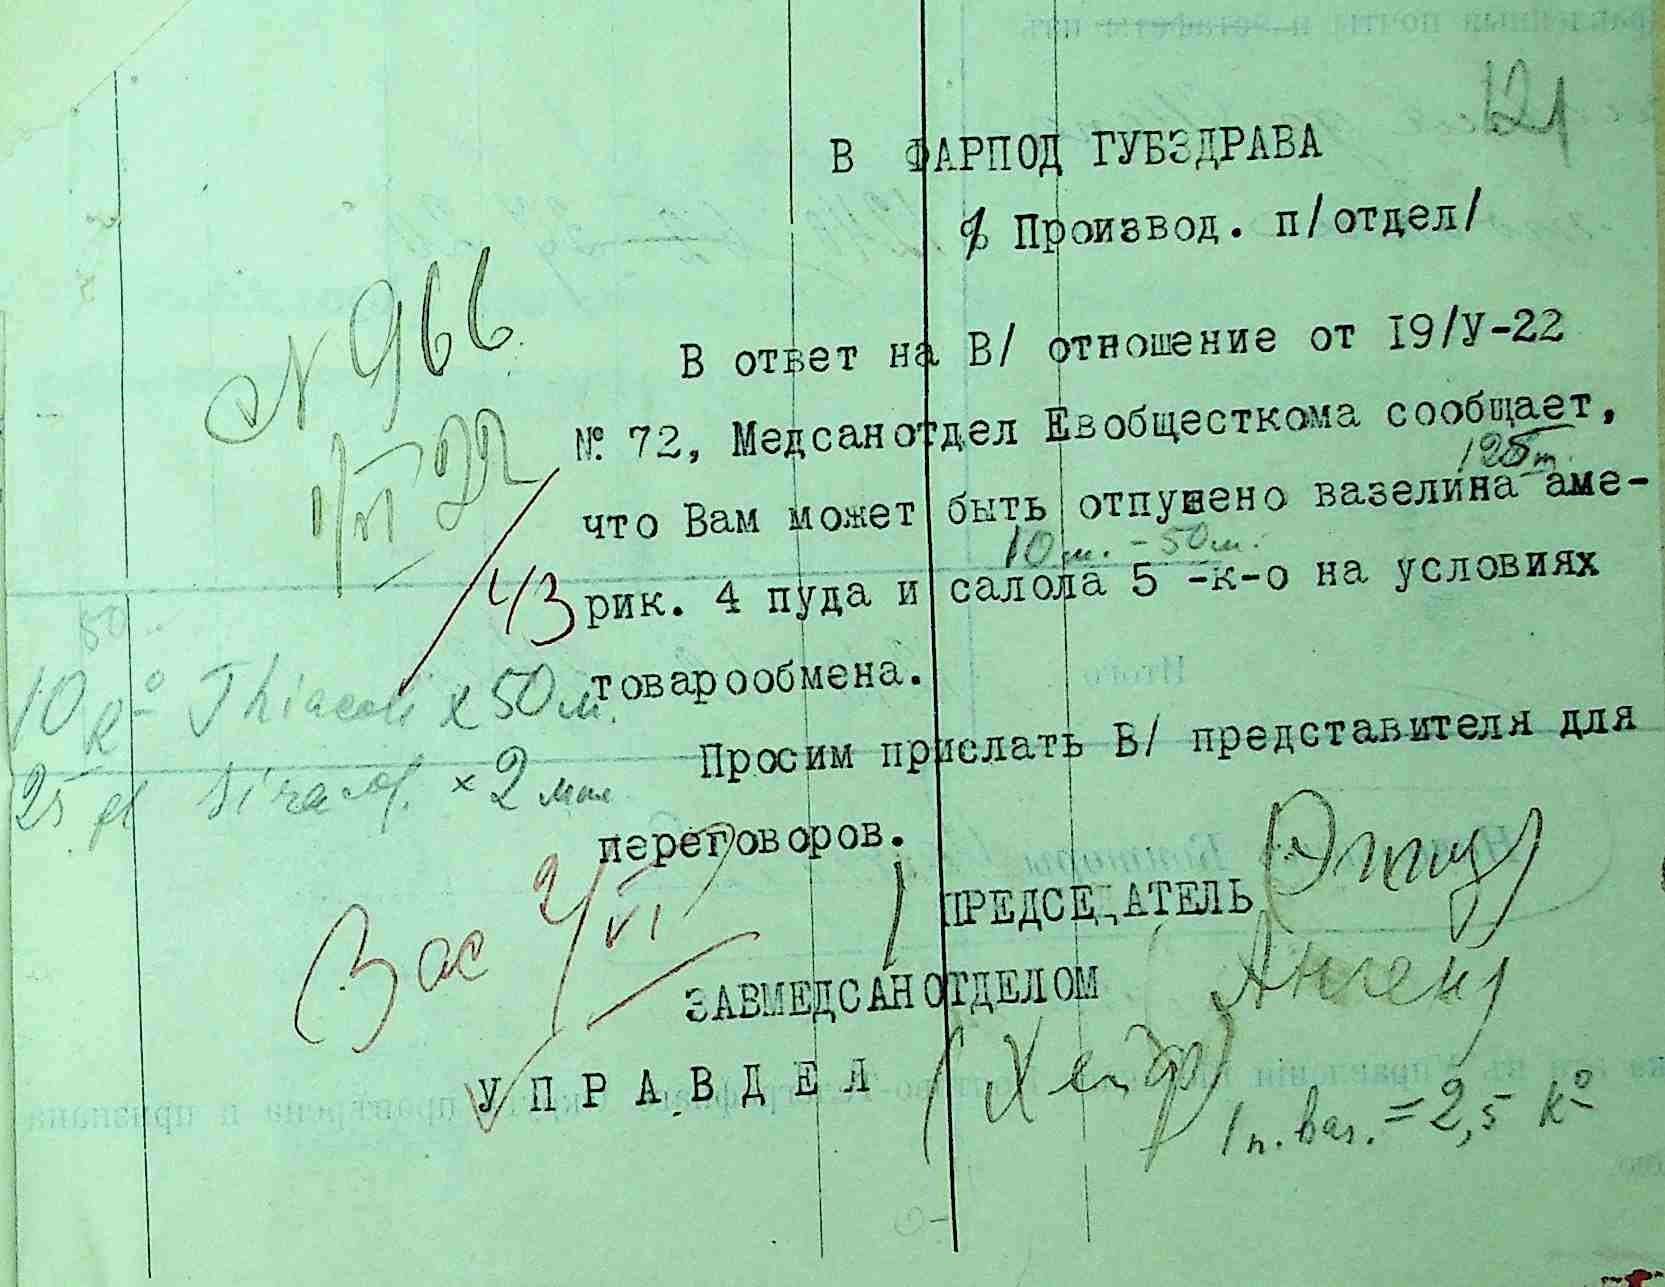 121
В ФАРПОД ГУБЗДРАВА
Производ. п/отдел/
N 966
1/VI 22
В ответ на В/ отношение от I9/У-22
№ 72, Медсанотдел Евобщесткома сообщает,
125 т.
что Вам может быть отпущено вазелина аме-
10 м. - 50 м.
4/3
рик. 4 пуда и салола 5 -к-о на условиях
товарообмена.
10 кº Thiacoli х 50 м.
Просим прислать В/ представителя для
25 × 2
переговоров.
Вас 2/VI
ПРЕДСЕДАТЕЛЬ
ЗАВМЕДСАНОТДЕЛОМ
УПРАВДЕЛ
1 п. ваз. = 2,5 кº